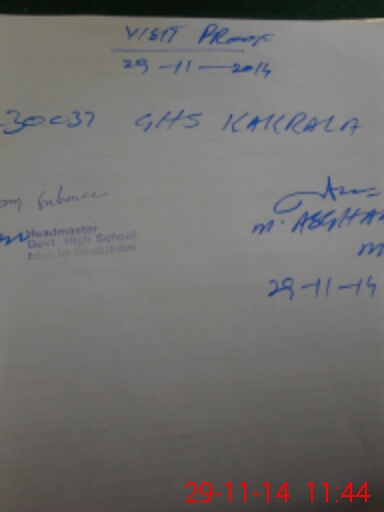 VISIT PROOF
29-11-2014
30037 GHS KAKRALA
Headmaster
Govt. High School
M. ASGHA
M
29-11-14
29-11-14 11:44